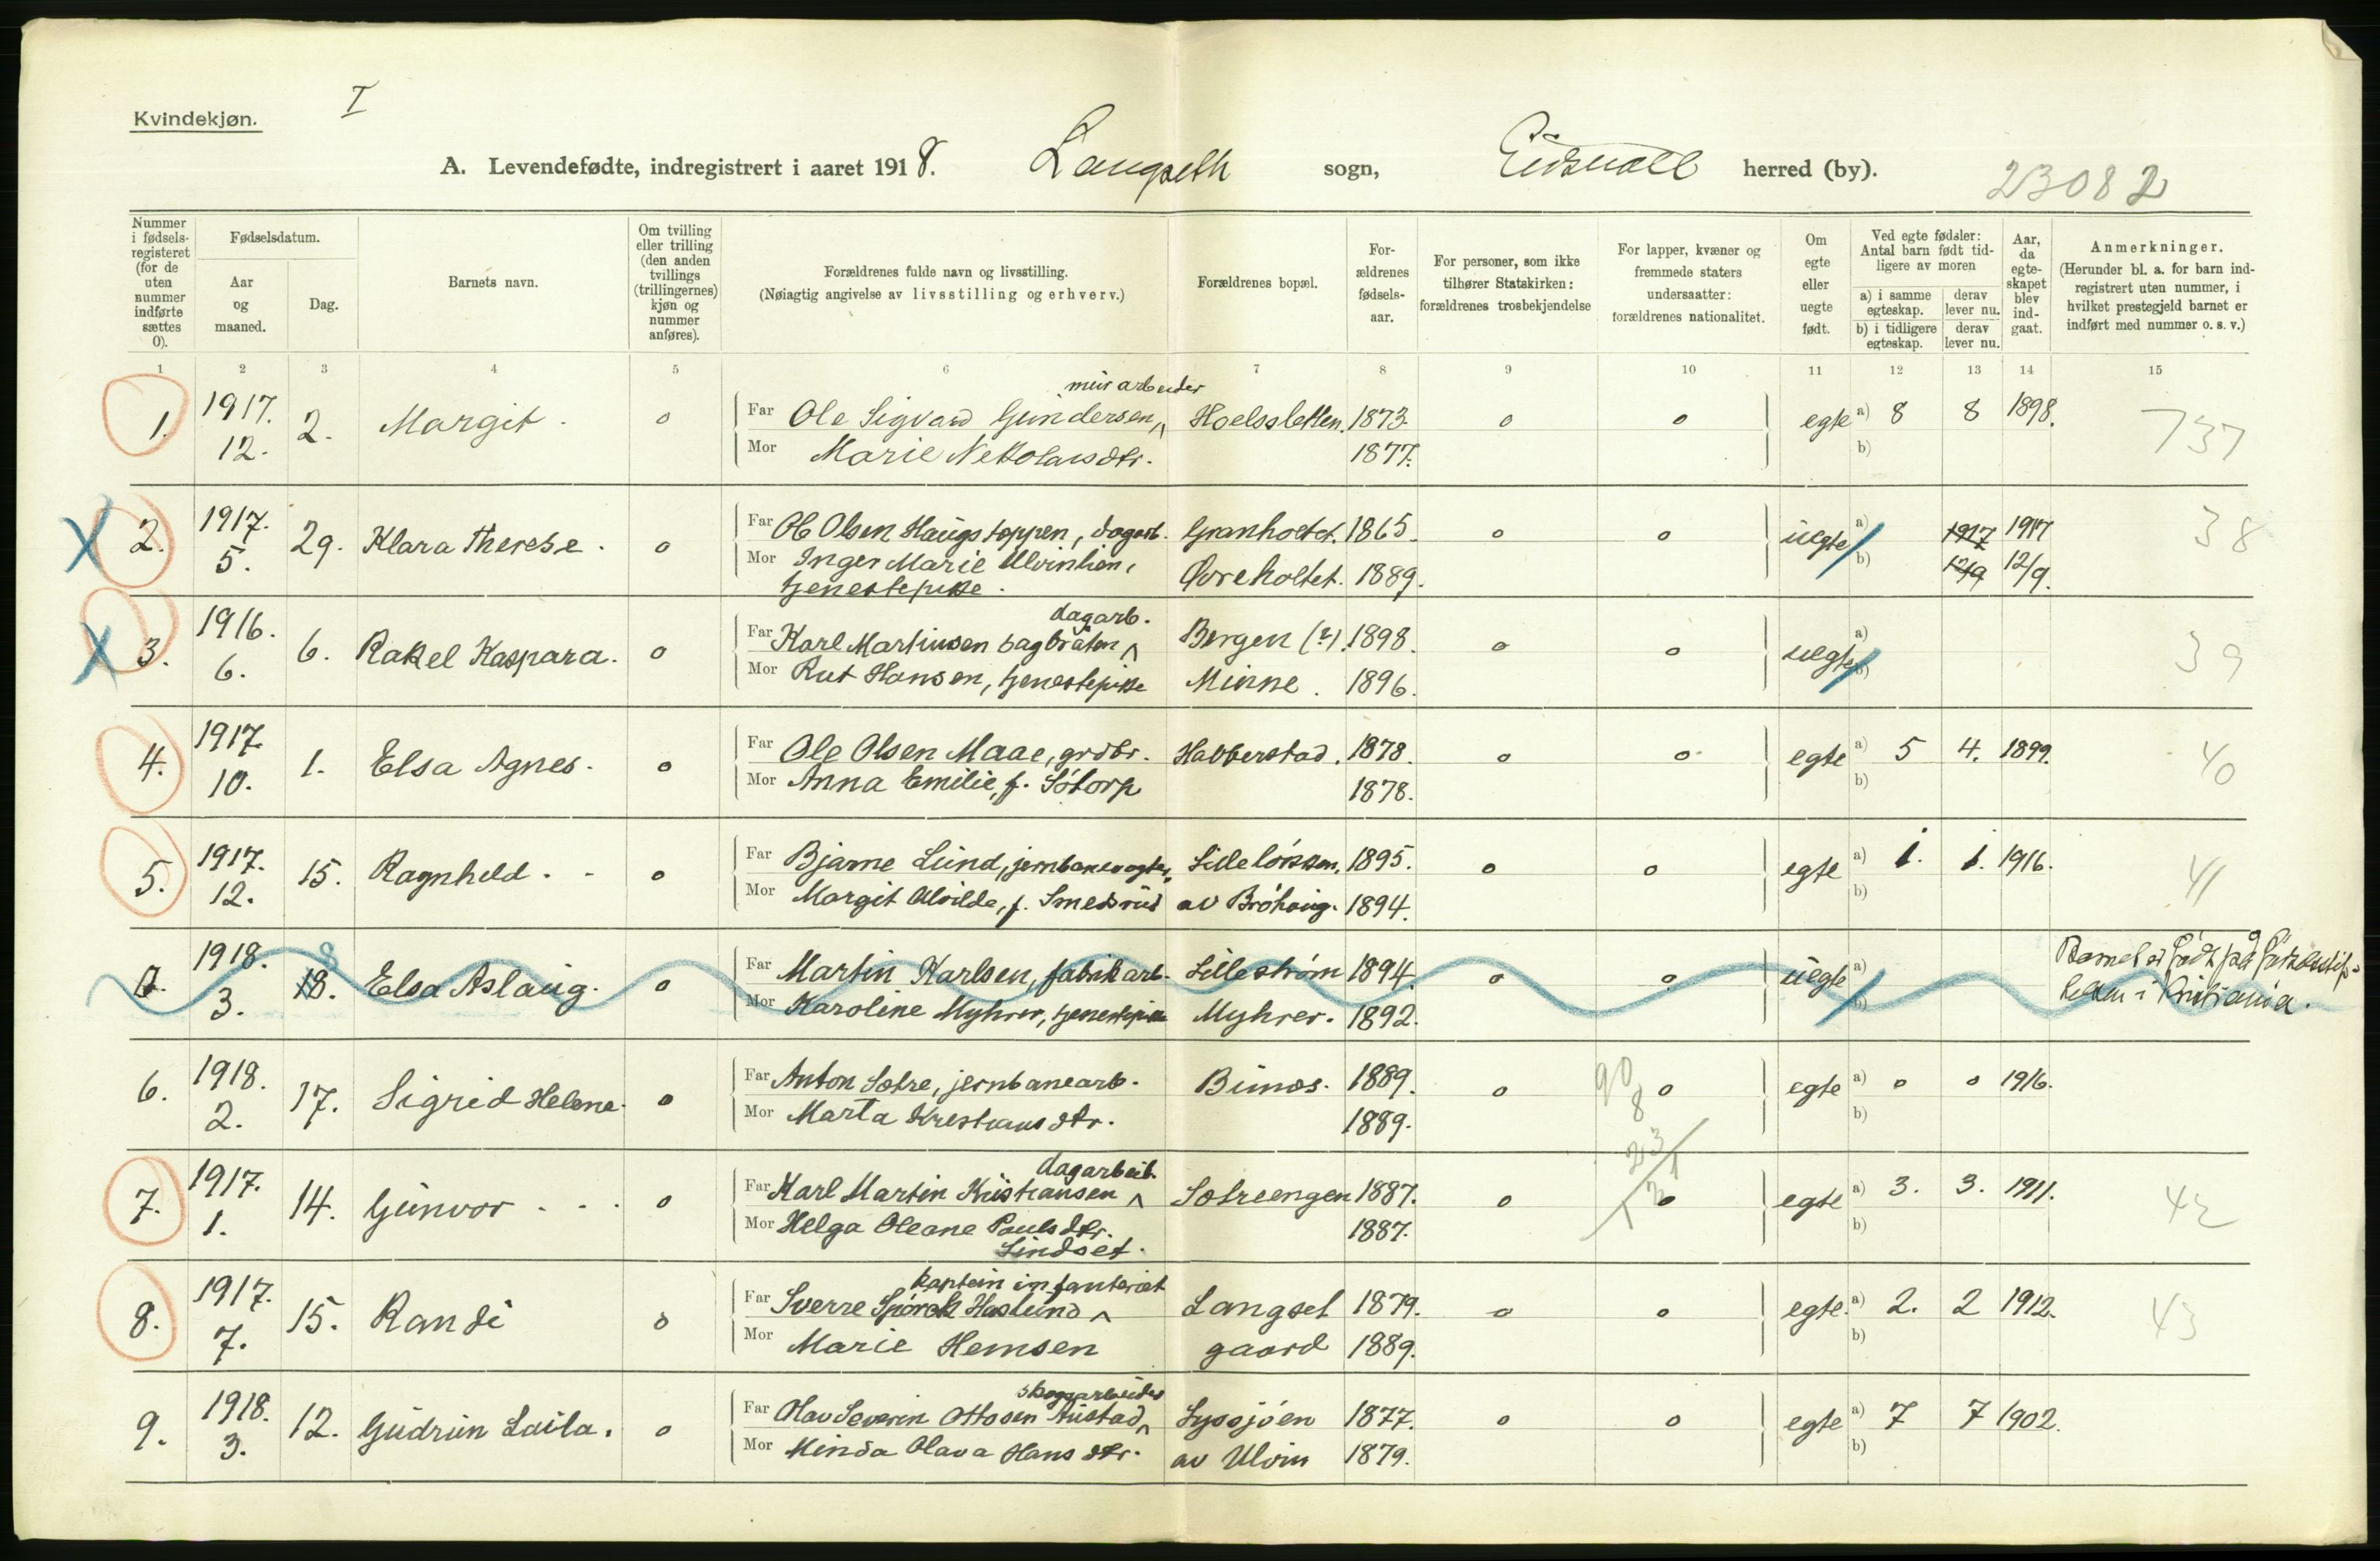 Kvindekjøn.
I
A. Levendefødte, indregistrert i aaret 1918. Langseth sogn, Eidsvoll herred (by).
23082
Nummer i fødsels-registeret (for de uten nummer indførte sættes 0).
Fødselsdatum.
Aar og maaned.
Dag.
Barnets navn.
Om tvilling eller trilling (den anden tvillings (trillingernes) kjøn og nummer anføres).
Forældrenes fulde navn og livsstilling.
(Nøiagtig angivelse av livsstilling og erhverv.)
Forældrenes bopæl.
For-ældrenes fødsels-aar.
For personer, som ikke tilhører Statskirken: forældrenes trosbekjendelse
For lapper, kvæner og fremmede staters undersaatter: forældrenes nationalitet.
Om egte eller uegte født.
Ved egte fødsler: Antal barn født tid-ligere av moren
a) i samme egteskap.
derav lever nu.
b) i tidligere egteskap.
derav lever nu.
Aar, da egte-skapet blev ind-gaat.
Anmerkninger.
(Herunder bl. a. for barn ind-registrert uten nummer, i hvilket prestegjeld barnet er indført med nummer o. s. v.)
1 2 3 4 5 6 7 8 9 10 11 12 13 14 15
murarbeider
1. 1917. 2. Margit. o Far Ole Sigvard Gundersen, Hoelssletten. 1873. o o egte a) 8 8 1898. 737
12. Mor Marie Nekolaisdtr. 1877. b)
2. 1917. 29. Klara Therese. o Far Ole Olsen Haugstoppen, dagarb. Granholtet. 1865. o o uegte a) 1917 1917 38
5. Mor Inger Marie Ulvinlien, Øvreholtet. 1889. b) 12/9 12/9.
tjenestepike.
dagarb.
3. 1916. 6. Rakel Kaspara. o Far Karl Martinsen Dagbråten Bergen (?). 1898. o o uegte a) 39
6. Mor Rut Hansen, tjenestepike Minne. 1896. b)
4. 1917. 1. Elsa Agnes. o Far Ole Olsen Maae, grdbr. Habberstad. 1878. o o egte a) 5 4. 1899. 40
10. Mor Anna Emilie, f. Sótorp 1878. b)
5. 1917. 15. Ragnhild. o Far Bjarne Lund, jernbanevogter, 1895. o o egte a) 1. 1. 1916. 41
12. Mor Margit Alvilde, f. Smedsrud av Bróhaug. 1894. b)
0. 1918. 18. 8 Elsa Aslaug. o Far Martin Karlsen, fabrikarb. Lillestrøm 1894. o o uegte a) Barnet er født på
3. Mor Karoline Myhrer, tjenestepike Myhrer. 1892. b) i Kristiania.
6. 1918. 17. Sigrid Helene. o Far Anton Sætre, jernbanearb. Bunæs. 1889. o 90 8 o egte a) o o 1916.
2. Mor Marta Krestiansdtr. 1889. b)
dagarbeid.
23
7. 1917. 14. Gunvor o Far Karl Martin Kristiansen Sætreengen 1887. o o egte a) 3. 3. 1911. 42
1. Mor Helga Oleane Paulsdtr. 1887. b)
Lindset.
kaptein infanteriet
8. 1917. 15. Randi o Far Sverre Haslund Langset 1879. o o egte. a) 2. 2 1912. 43
7. Mor Marie Hemsen gaard 1889. b)
skogsarbeider
9. 1918. 12. Gudrun Laila. o Far Olav Severin Ottosen Austad, Lyssjøen 1877. o o egte a) 7 7 1902.
3. Mor Minda Olava Hansdtr. av Ulvin 1879. b)